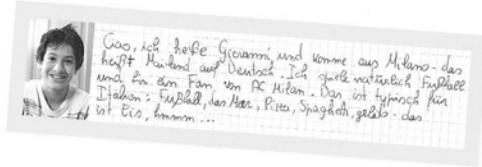 Ciao, ich heiße Giovanni und komme aus Milano - das
heißt Mailand auf Deutsch. Ich spiele natürlich Fußball
und bin ein Fan von AC Milan. Das ist typisch für
Italien: Fußball, das Meer, Pizza, Spaghetti, gelato - das
ist Eis, hmmm ...